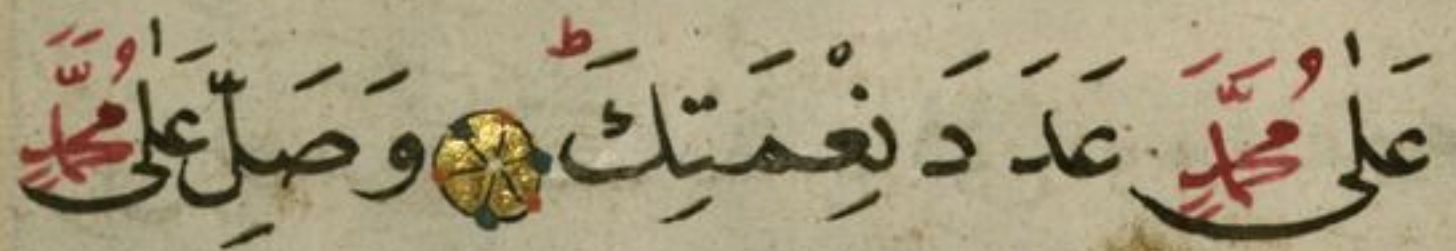 عَلٰى مُحَمَّدٍ عَدَدَ نِعْمَتِكَ ط وَصَلِّ عَلٰى مُحَمَّدٍ